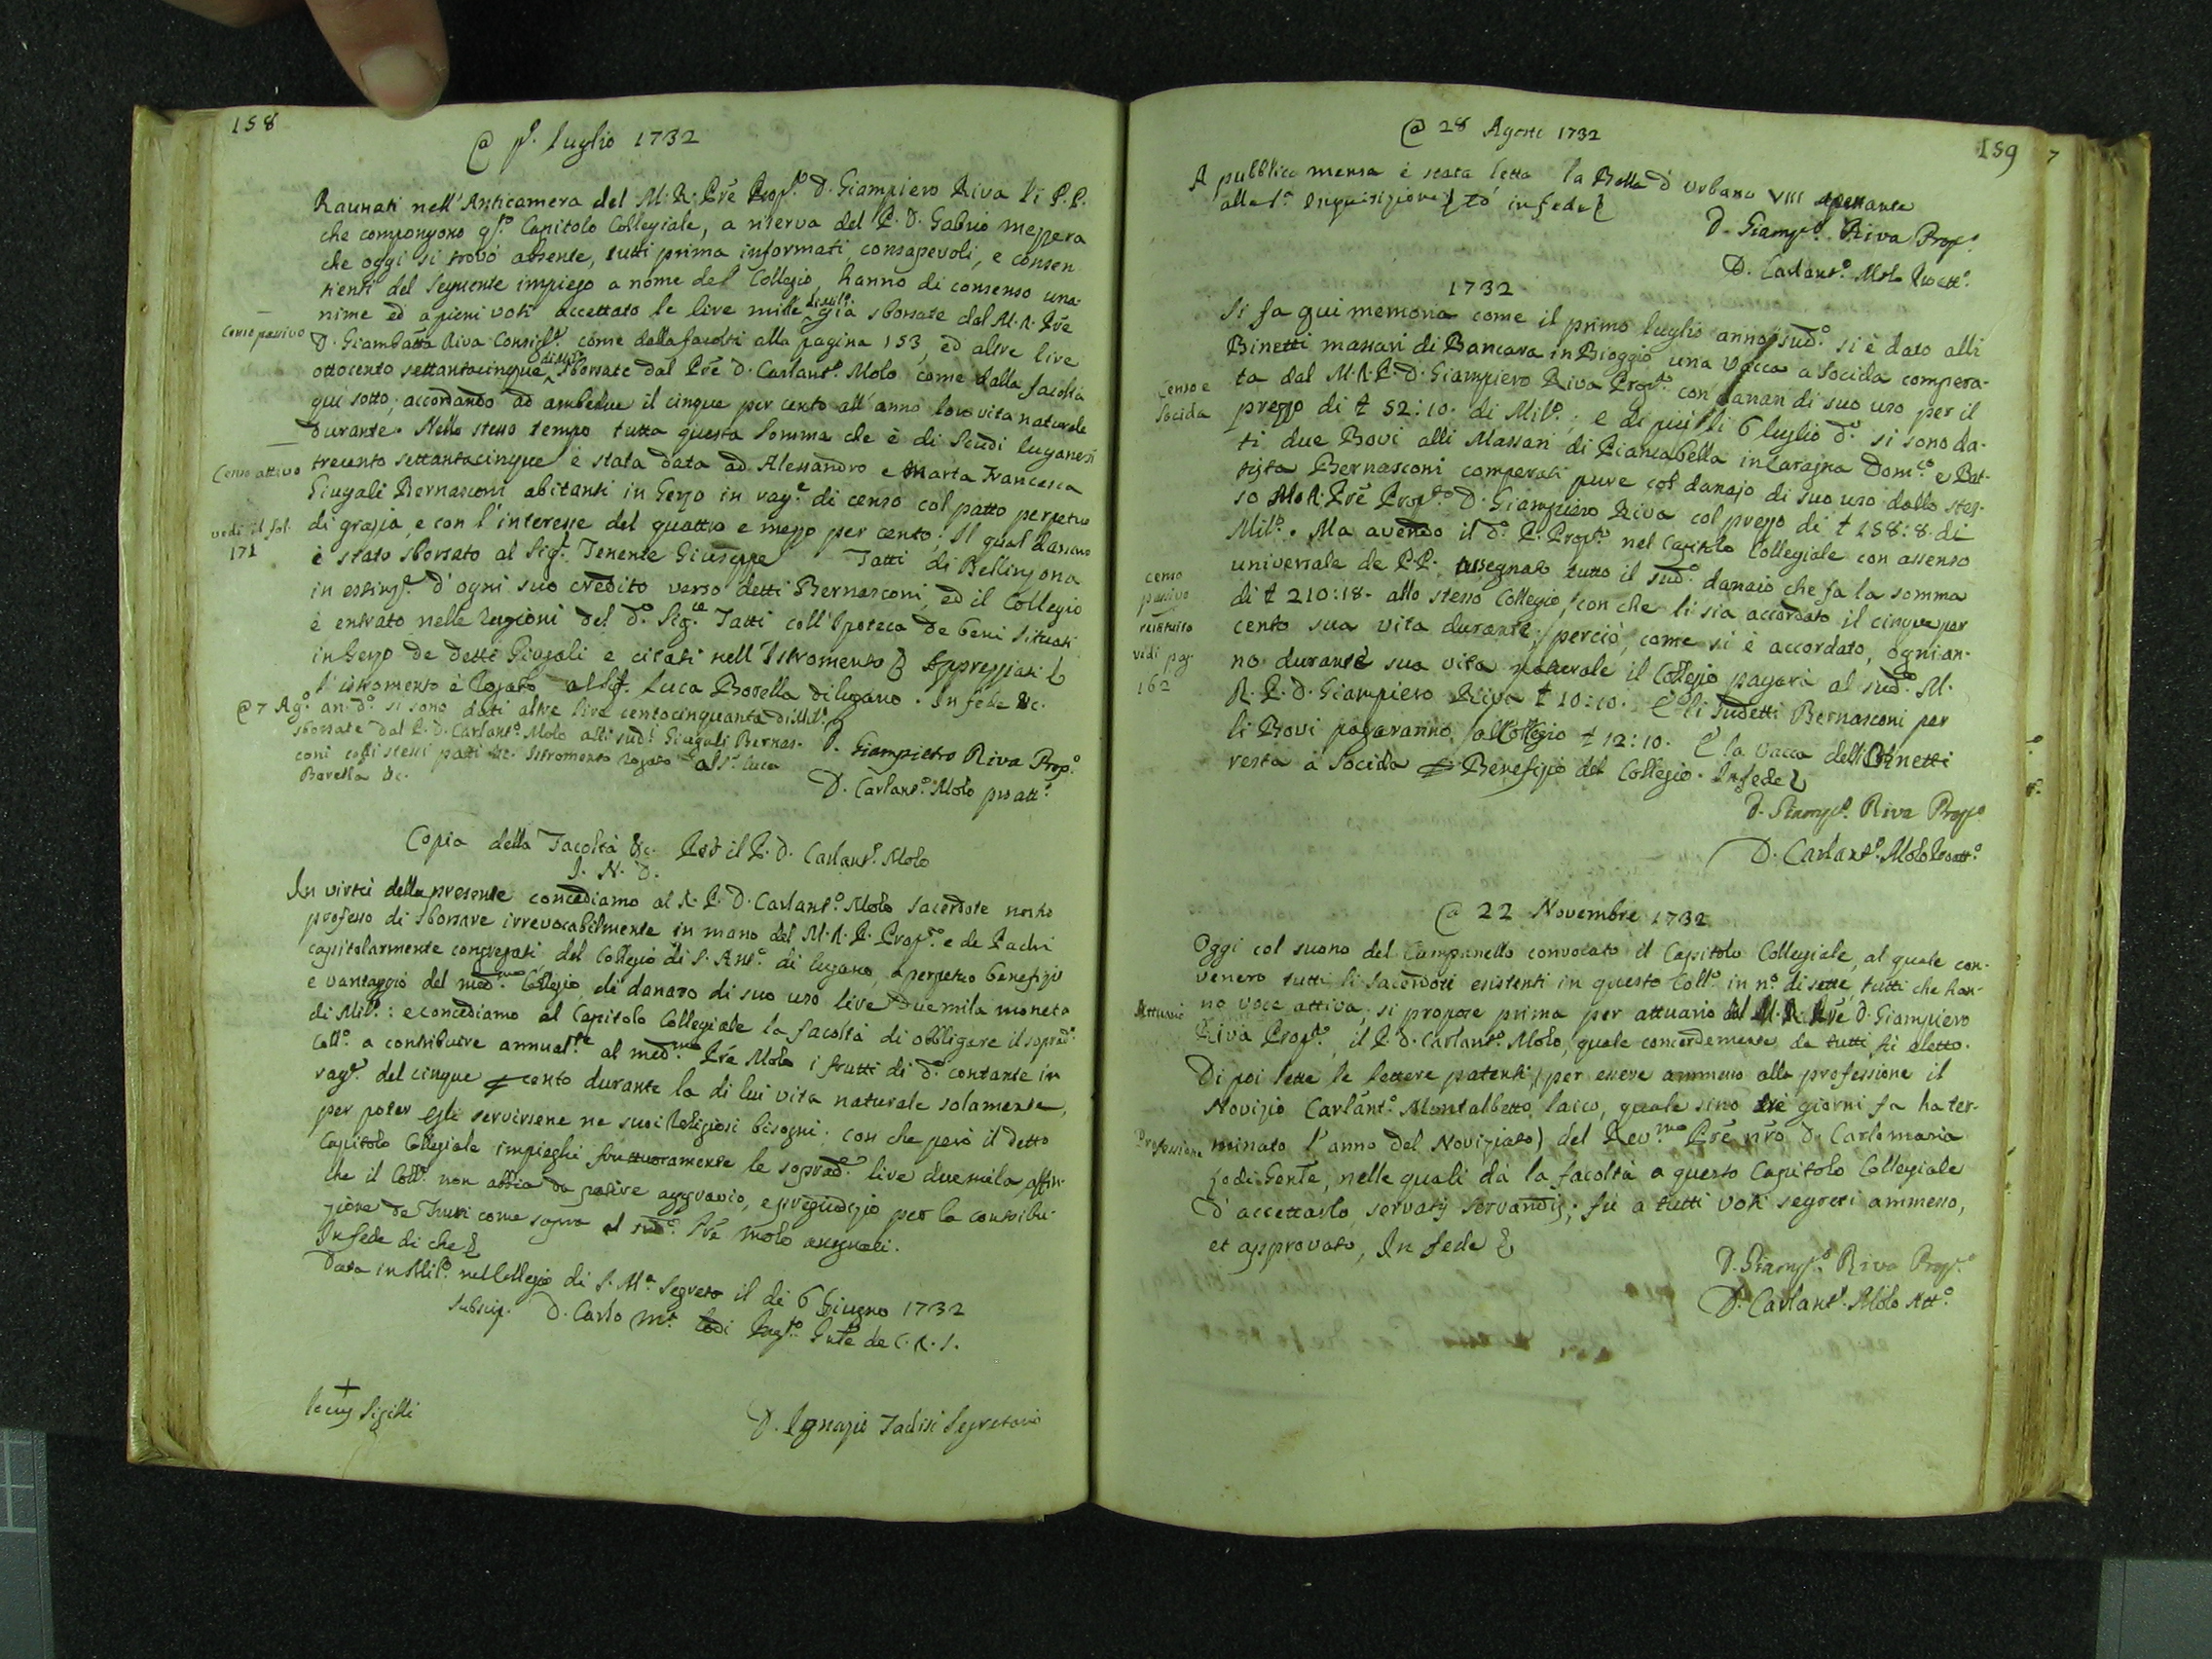 158
@ p.º luglio 1732
Raunati nell'Anticamera del M: R: Prē Prop.to D. Giampiero Riva li P.P.
che compongono q.sto Capitolo Collegiale, a riserva del P. D. Gabrio mezzera
che oggi si trovò absente, tutti prima informati, consapevoli, e consen
tienti del seguente impiego a nome del Collegio, hanno di consenso una-
nime ed a pieni voti accettato le lire mille di Mil.º già sborsate dal M. R. Prē
Censo passivo
D. Giambatta Riva Consigl.re come dalla facoltà alla pagina 153, ed altre lire
ottocento settantacinque di Mil.º sborsate dal Prē D. Carlant.º Molo come dalla facoltà
quì sotto; accordando ad ambedue il cinque per cento all'anno loro vita naturale
durante. Nello stesso tempo tutta questa somma che è di Scudi luganesi
Censo attivo
trecento settantacinque è stata data ad Alessandro e Marta Francesca
Giugali Bernasconi abitanti in Genzo in rag.e di censo col patto perpetuo
vedi il fol.
171
di grazia, e con l'interesse del quattro e mezzo per cento: Il qual danaro
è stato sborsato al Sig.r Tenente Giuseppe Tatti di Bellinzona
in estinz.e d'ogni suo credito verso detti Bernasconi, ed il Collegio
è entrato nelle ragioni del d.º Sig.re Tatti coll'Ipoteca de beni situati
in Genzo de detti Giugali e citati nell'Istromento
l'istromento è Rogato al Sig.r Luca Borella di lugano. In fede &c.
@ 7 Ag.º an. d.º si sono dati altre lire centocinquanta di Mil.º
sborsate dal P. D. Carlant.º Molo alli sud.i Giugali Bernas-
coni colli stessi patti &c. Istromento rogato al S.r Luca
Borella &c.
D. Giampietro Riva Prop.º
D. Carlant.º Molo pro att.º
Copia della Facoltà &c. Per il P. D. Carlant.º Molo
I. N. D.
In virtù della presente concediamo al R. P. D. Carlant.º Molo Sacerdote nostro
professo di sborsare irrevocabilmente in mano del M. R. P. Prop.to e de Padri
capitolarmente congregati del Collegio di S. Ant.º di lugano, a perpetuo benefizio
e vantaggio del med.mo Collegio, di danaro di suo uso lire duemila moneta
di Mil.º: e concediamo al Capitolo Collegiale la facoltà di obbligare il soprad.º
Coll.º a contribuire annual.te al med.mo Prē Molo i frutti di d.º contante in
rag.e del cinque per cento durante la di lui vita naturale solamente,
per poter egli servirsene ne suoi Religiosi bisogni. con che però il detto
Capitolo Collegiale impieghi fruttuosamente le soprad.e lire duemila, affin-
che il Coll.º non abbia da patire aggravio, e pregiudizio per la contribu-
zione de frutti come sopra al sud.º Prē Molo assegnati.
In fede di che
Data in Mil.º nel Collegio di S. M.a Segreta il dì 6 Giugno 1732
Subscrip. D. Carlo M.a Lodi Prep.to Gnle de C. R. S.
+
locus Sigilli
D. Ignazio Tadisi Segretario
159
@ 28 Agosto 1732
A pubblica mensa è stata letta la Bolla d'Urbano VIII spettante
alla S.ta Inquisizione in fede
D. Giamp.º Riva Prop.º
D. Carlant.º Molo Proatt.º
1732
Si fa qui memoria come il primo luglio anno sud.º si è dato alli
Binetti massari di Bancara in Bioggio una vacca a Socida compera-
Censo e
Socida
ta dal M. R. P. D. Giampiero Riva Prop.to con danari di suo uso per il
prezzo di ł 52:10. di Mil.º; e di più li 6 luglio d.º si sono da-
ti due Bovi alli Massari di Biancabella in Caragna Dom.co e Bat-
tista Bernasconi comperati pure col danajo di suo uso dallo stes-
so M. R. Prē Prop.to D. Giampiero Riva col prezzo di ł 158:8. di
Mil.º. Ma avendo il d.º P. Prop.to nel Capitolo Collegiale con assenso
censo
passivo
restituito
vedi pag.
162
universale de P.P. assegnato tutto il sud.º danaio che fa la somma
di ł 210:18. allo stesso Collegio, con che li sia accordato il cinque per
cento sua vita durante; perciò, come si è accordato, ogni an-
no durante sua vita naturale il Collegio pagarà al sud.º M.
R. P. D. Giampiero Riva ł 10:10. E li sudetti Bernasconi per
li Bovi pagaranno al Collegio ł 12:10. E la vacca delli Binetti
resta a Socida per Benefizio del Collegio. In fede
D. Giamp.º Riva Prop.to
D. Carlant.º Molo Proatt.º
@ 22 Novembre 1732
Oggi col suono del Campanello convocato il Capitolo Collegiale, al quale con-
venero tutti li Sacerdoti esistenti in questo Coll.º in n.º di sette, tutti che han-
Attuario
no voce attiva, si propose prima per attuario dal M. R. Prē D. Giampiero
Riva Prop.to, il P. D. Carlant.º Molo, quale concordemente da tutti fù eletto.
Di poi lette le lettere patenti, (per essere ammesso alla professione il
Novizio Carlant.º Montalbetto laico, quale sino trè giorni fa ha ter-
Professione
minato l'anno del Noviziato) del Rev.mo Prē nrō D. Carlo maria
Lodi Genle, nelle quali dà la facoltà a questo Capitolo Collegiale
d'accettarlo servatis servandis; fù a tutti voti segreti ammesso,
et approvato, In fede
D. Giamp.º Riva Prop.º
D. Carlant.º Molo Att.º